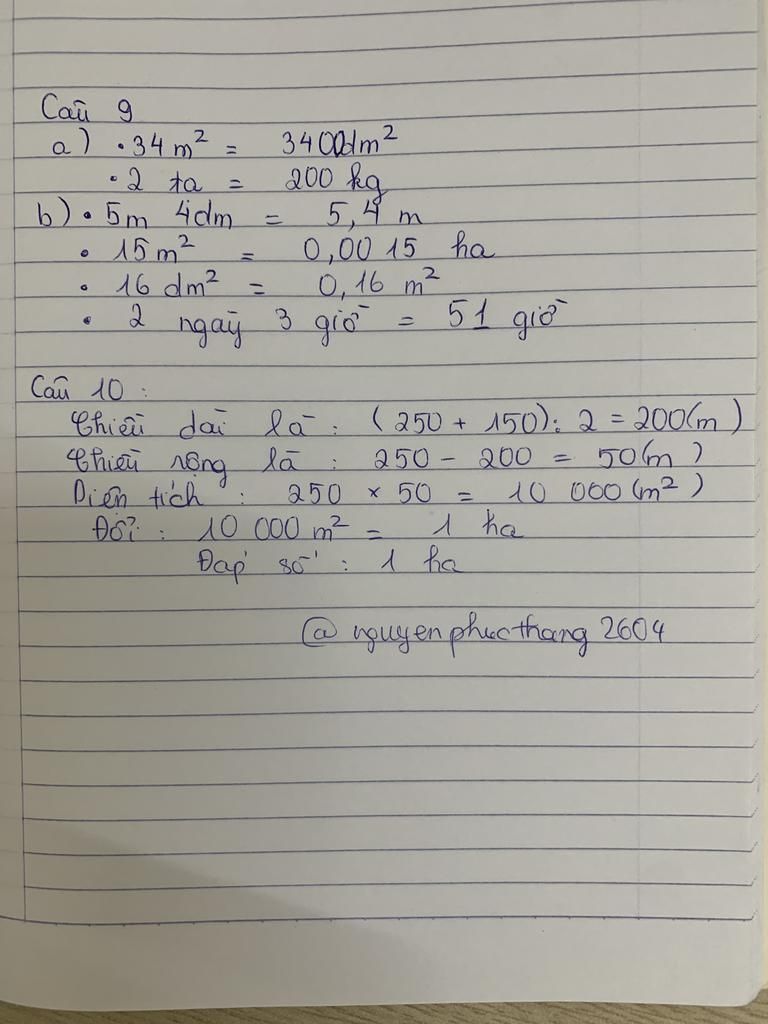 Câu 9
a) • 34 m² = 3400dm²
• 2 tạ = 200 kg
b) • 5m 4dm = 5,4 m
• 15 m² = 0,0015 ha
• 16 dm² = 0,16 m²
• 2 ngày 3 giờ = 51 giờ
Câu 10 :
Chiều dài là : (250 + 150) : 2 = 200(m)
Chiều rộng là : 250 - 200 = 50(m)
Diện tích : 250 × 50 = 10 000 (m²)
Đổi : 10 000 m² = 1 ha
Đáp số : 1 ha
@ nguyenphucthang 2604